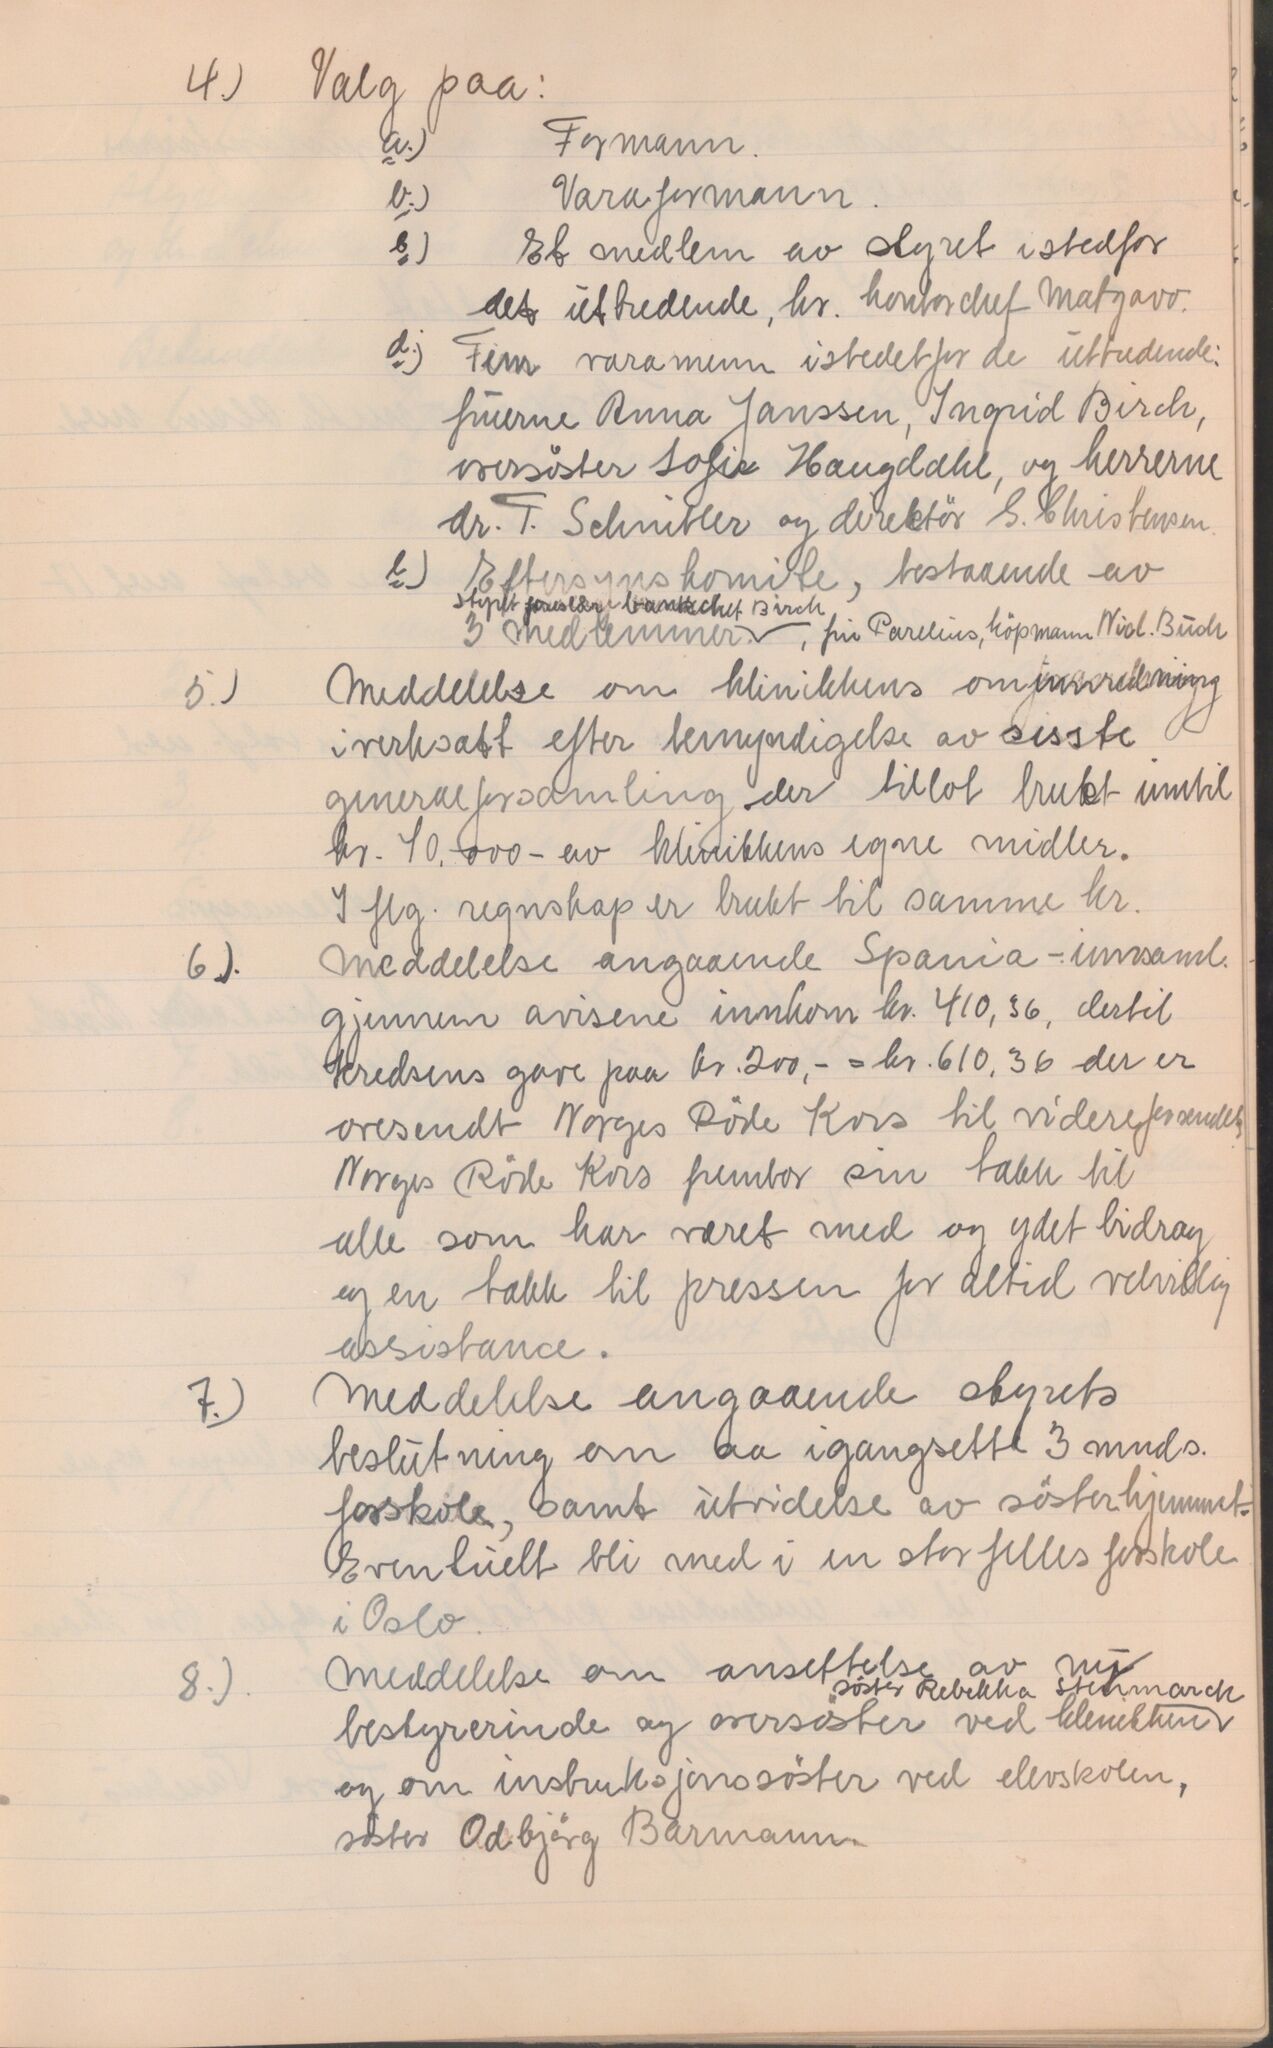 4.) Valg paa:
a.) Formann.
b.) Varaformann.
c.) Et medlem av styret istedfor
det uttredende, hr. kontorchef Matzow.
d.) Fem varamenn istedetfor de uttredende:
fruerne Anna Janssen, Ingrid Birch,
oversöster Sofie Haugdahl, og herrerne
dr. T. Schnitler og direktör S. Christensen.
e.) Eftersynskomite, bestaaende av
styret foreslår banksjef Birch
3 medlemmer ✓, fru Parelius, köpmann Nicl. Buch
5.) Meddelelse om klinikkens ominnredning
iverksatt efter bemyndigelse av sisste
generalforsamling der tillot brukt inntil
kr. 10.000 - av klinikkens egne midler.
I flg. regnskap er brukt til samme kr.
6.). Meddelelse angaaende Spania - innsaml.
gjennem avisene innkom kr. 410,36, dertil
kredsens gave paa kr. 200,- = kr. 610,36 der er
oversendt Norges Röde Kors til videreforsendelse
Norges Röde Kors frembor sin takk til
alle som har været med og ydet bidrag
og en takk til pressen for altid velvillig
assistance.
7.) Meddelelse angaaende styrets
beslutning om aa igangsette 3 mnds.
forskole, samt utvidelse av sösterhjemmet.
Eventuelt bli med i en stor felles forskole
i Oslo.
8.). Meddelelse om ansettelse av ny
söster Rebekka Stenmarck
bestyrerinde og oversöster ved klinikken ✓
og om instruksjonssöster ved elevskolen,
söster Odbjörg Barmann.